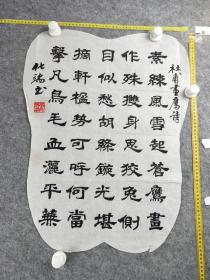 杜甫畫鷹詩
素練風雪起蒼鷹畫
作殊㩳身思狡兔側
目似愁胡絛鏇光堪
摘軒楹勢可呼何當
擊凡鳥毛血灑平蕪
化瑞書